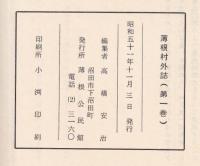 薄根村外誌(第一巻)
昭和五十一年十一月三日 発行
編集者 高橋安治
沼田市下沼田町
発行所 薄根公民館
電話 ②三一六〇
印刷所 小渕印刷